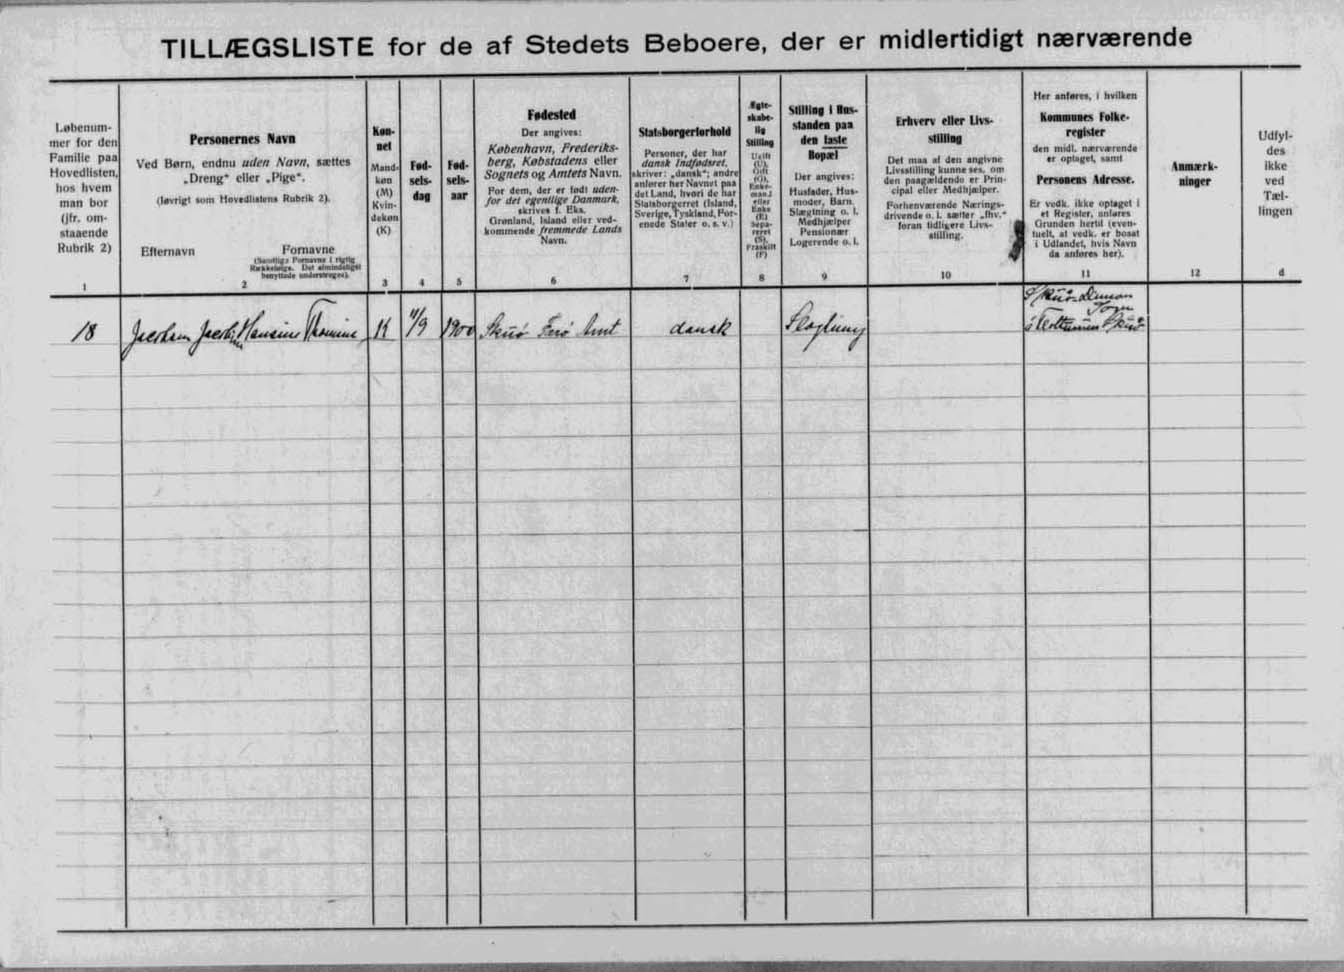 TILLÆGSLISTE for de af Stedets Beboere, der er midlertidigt nærværende
Løbenum-
mer for den
Familie paa
Hovedlisten,
hos hvem
man bor
(jfr. om-
staaende
Rubrik 2)
1
Personernes Navn
Ved Børn, endnu uden Navn, sættes
„Dreng“ eller „Pige“.
(Iøvrigt som Hovedlistens Rubrik 2).
Efternavn
Fornavne
(Samtlige Fornavne i rigtig
Rækkefølge. Det almindeligst
benyttede understreges).
2
Køn-
net
Mand-
køn
(M)
Kvin-
dekøn
(K)
3
Fød-
sels-
dag
4
Fød-
sels-
aar
5
Fødested
Der angives:
København, Frederiks-
berg, Købstadens eller
Sognets og Amtets Navn.
For dem, der er født uden-
for det egentlige Danmark,
skrives f. Eks.
Grønland, Island eller ved-
kommende fremmede Lands
Navn.
6
Statsborgerforhold
Personer, der har
dansk Indfødsret,
skriver: „dansk“; andre
anfører her Navnet paa
det Land, hvori de har
Statsborgerret (Island,
Sverige, Tyskland, For-
enede Stater o. s. v.)
7
Ægte-
skabe-
lig
Stilling
Ugift
(U),
Gift
(G),
Enke-
mand
eller
Enke
(E)
Sepa-
reret
(S),
Fraskilt
(F)
8
Stilling i Hus-
standen paa
den faste
Bopæl
Der angives:
Husfader, Hus-
moder, Barn,
Slægtning o. l.
Medhjælper
Pensionær
Logerende o. l.
9
Erhverv eller Livs-
stilling
Det maa af den angivne
Livsstilling kunne ses, om
den paagældende er Prin-
cipal eller Medhjælper.
Forhenværende Nærings-
drivende o. l. sætter „fhv.“
foran tidligere Livs-
stilling.
10
Her anføres, i hvilken
Kommunes Folke-
register
den midl. nærværende
er optaget, samt
Personens Adresse.
Er vedk. ikke optaget i
et Register, anføres
Grunden hertil (even-
tuelt, at vedk. er bosat
i Udlandet, hvis Navn
da anføres her).
11
Anmærk-
ninger
12
Udfyl-
des
ikke
ved
Tæl-
lingen
d
18 Hansine K 1900 Amt dansk